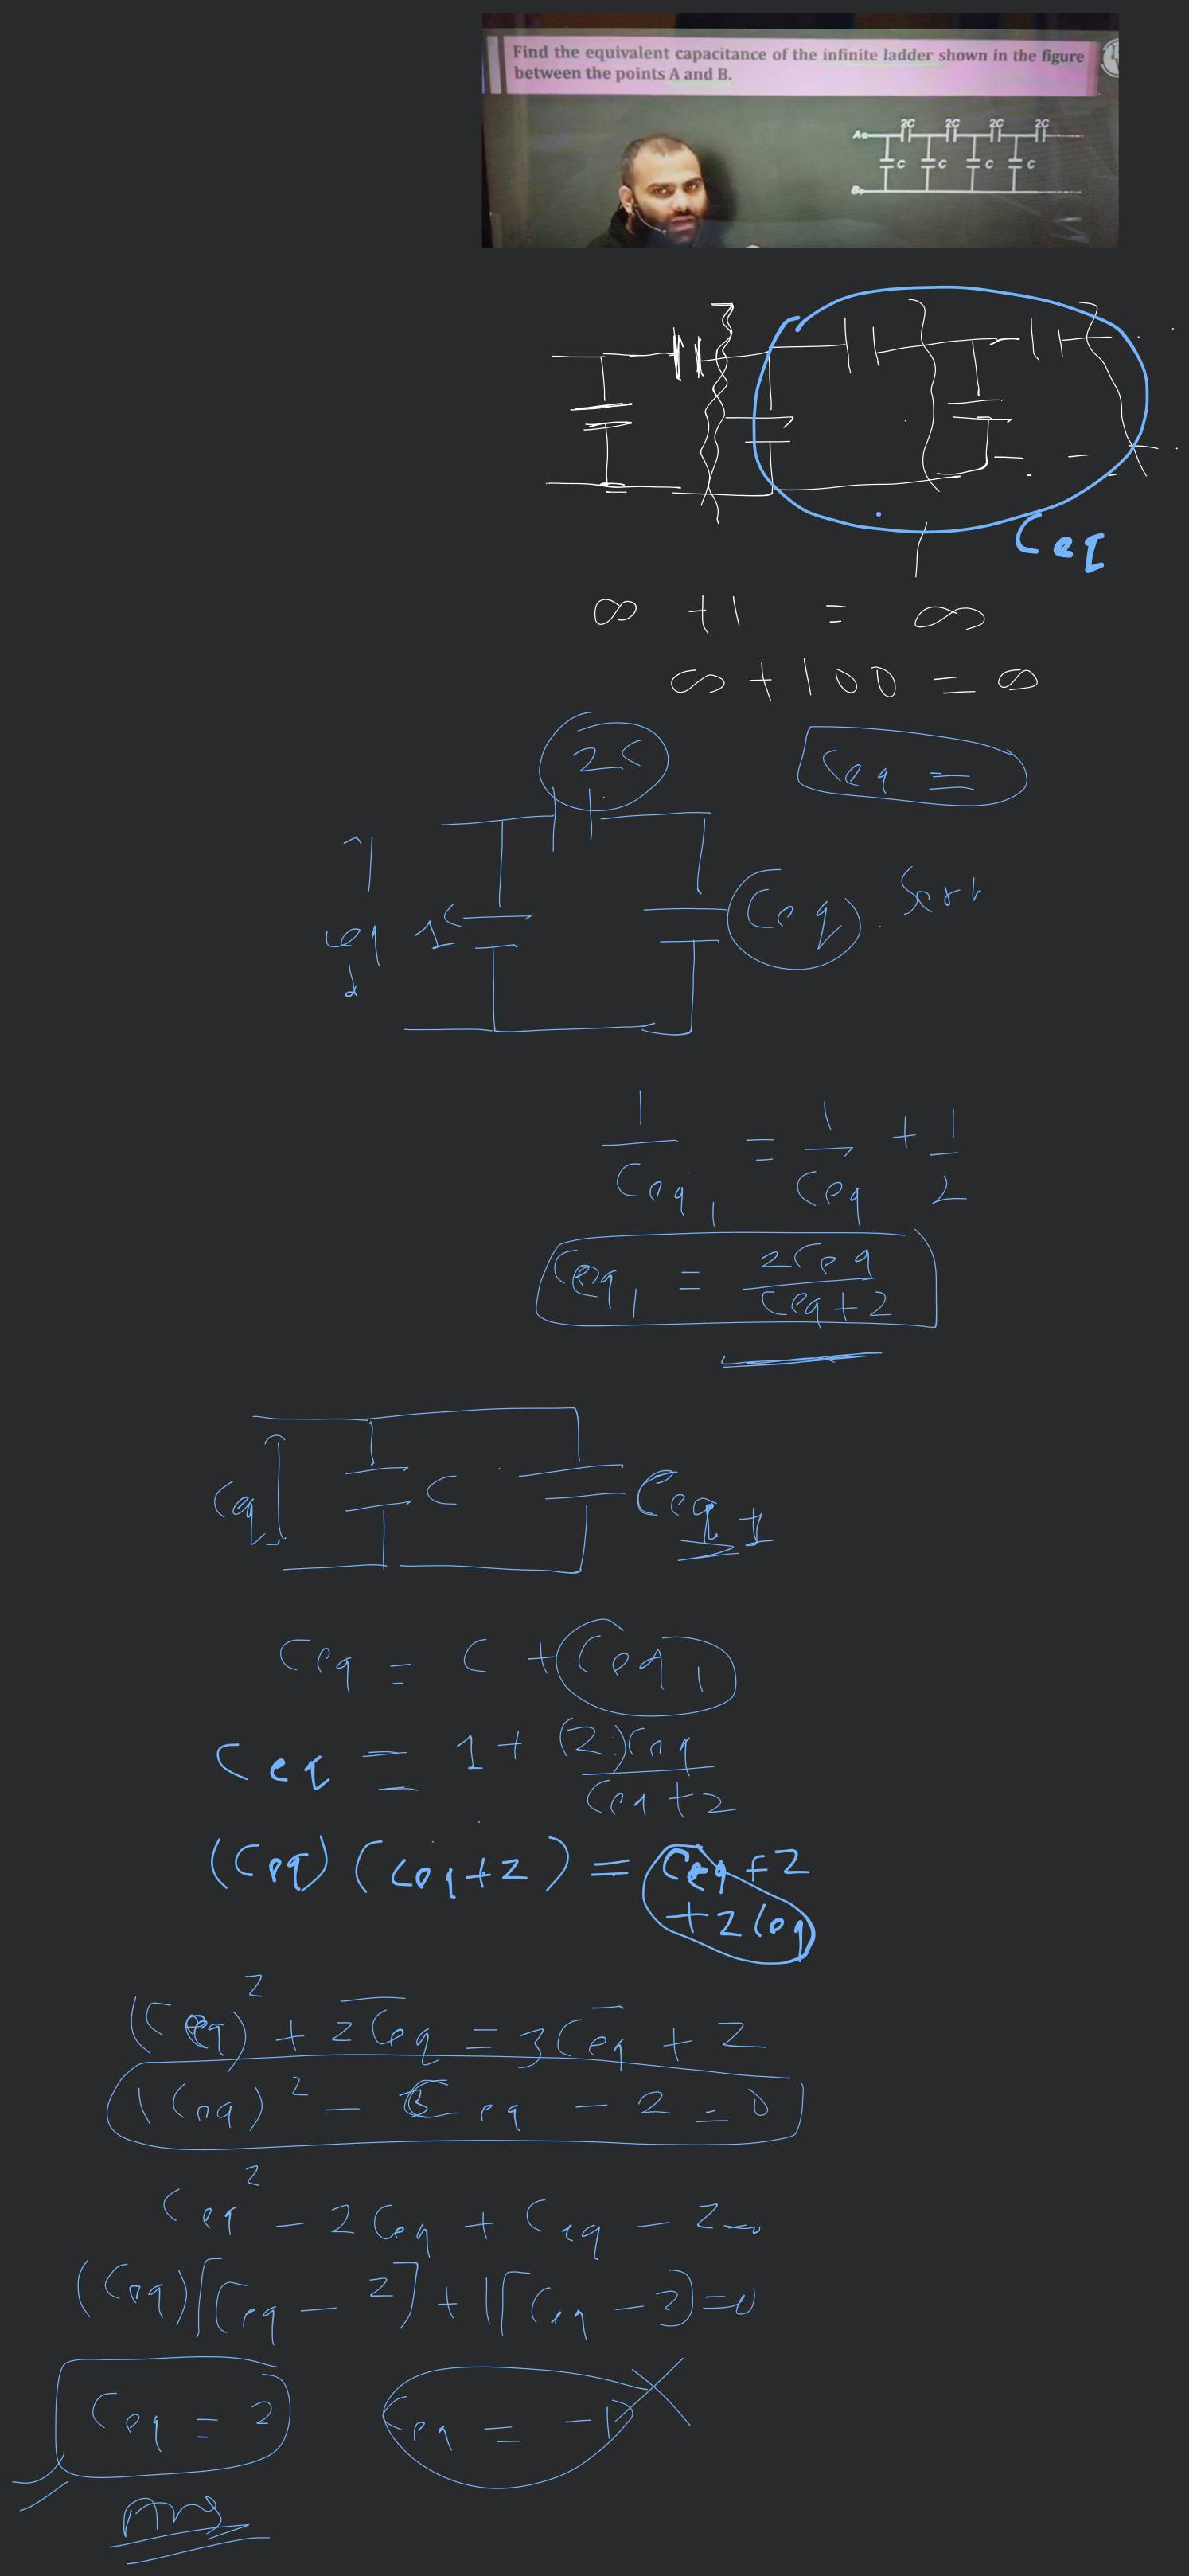 Find the equivalent capacitance of the infinite ladder shown in the figure
between the points A and B.
2C 2C 2C 2C
A
C C C C
B
Ceq
∞ +1 = ∞
∞ + 100 = ∞
2C
Ceq =
Ceq 1C Ceq
1/Ceq1 = 1/Ceq + 1/2
Ceq1 = 2Ceq/Ceq+2
Ceq C Ceq1
Ceq = C + Ceq1
Ceq = 1 + (2)Ceq/Ceq+2
(Ceq) (Ceq+2) = Ceq+2
+2Ceq
(Ceq)² + 2Ceq = 3Ceq + 2
1(Ceq)² - Ceq - 2 = 0
Ceq² - 2Ceq + Ceq - 2=0
(Ceq)[Ceq - 2] + 1[Ceq - 2]=0
Ceq = 2 Ceq = -1
Ans